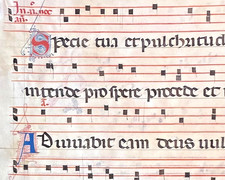 Specie tua et pulchritud
intende prospere procede et
Adiuuabit eam deus uul